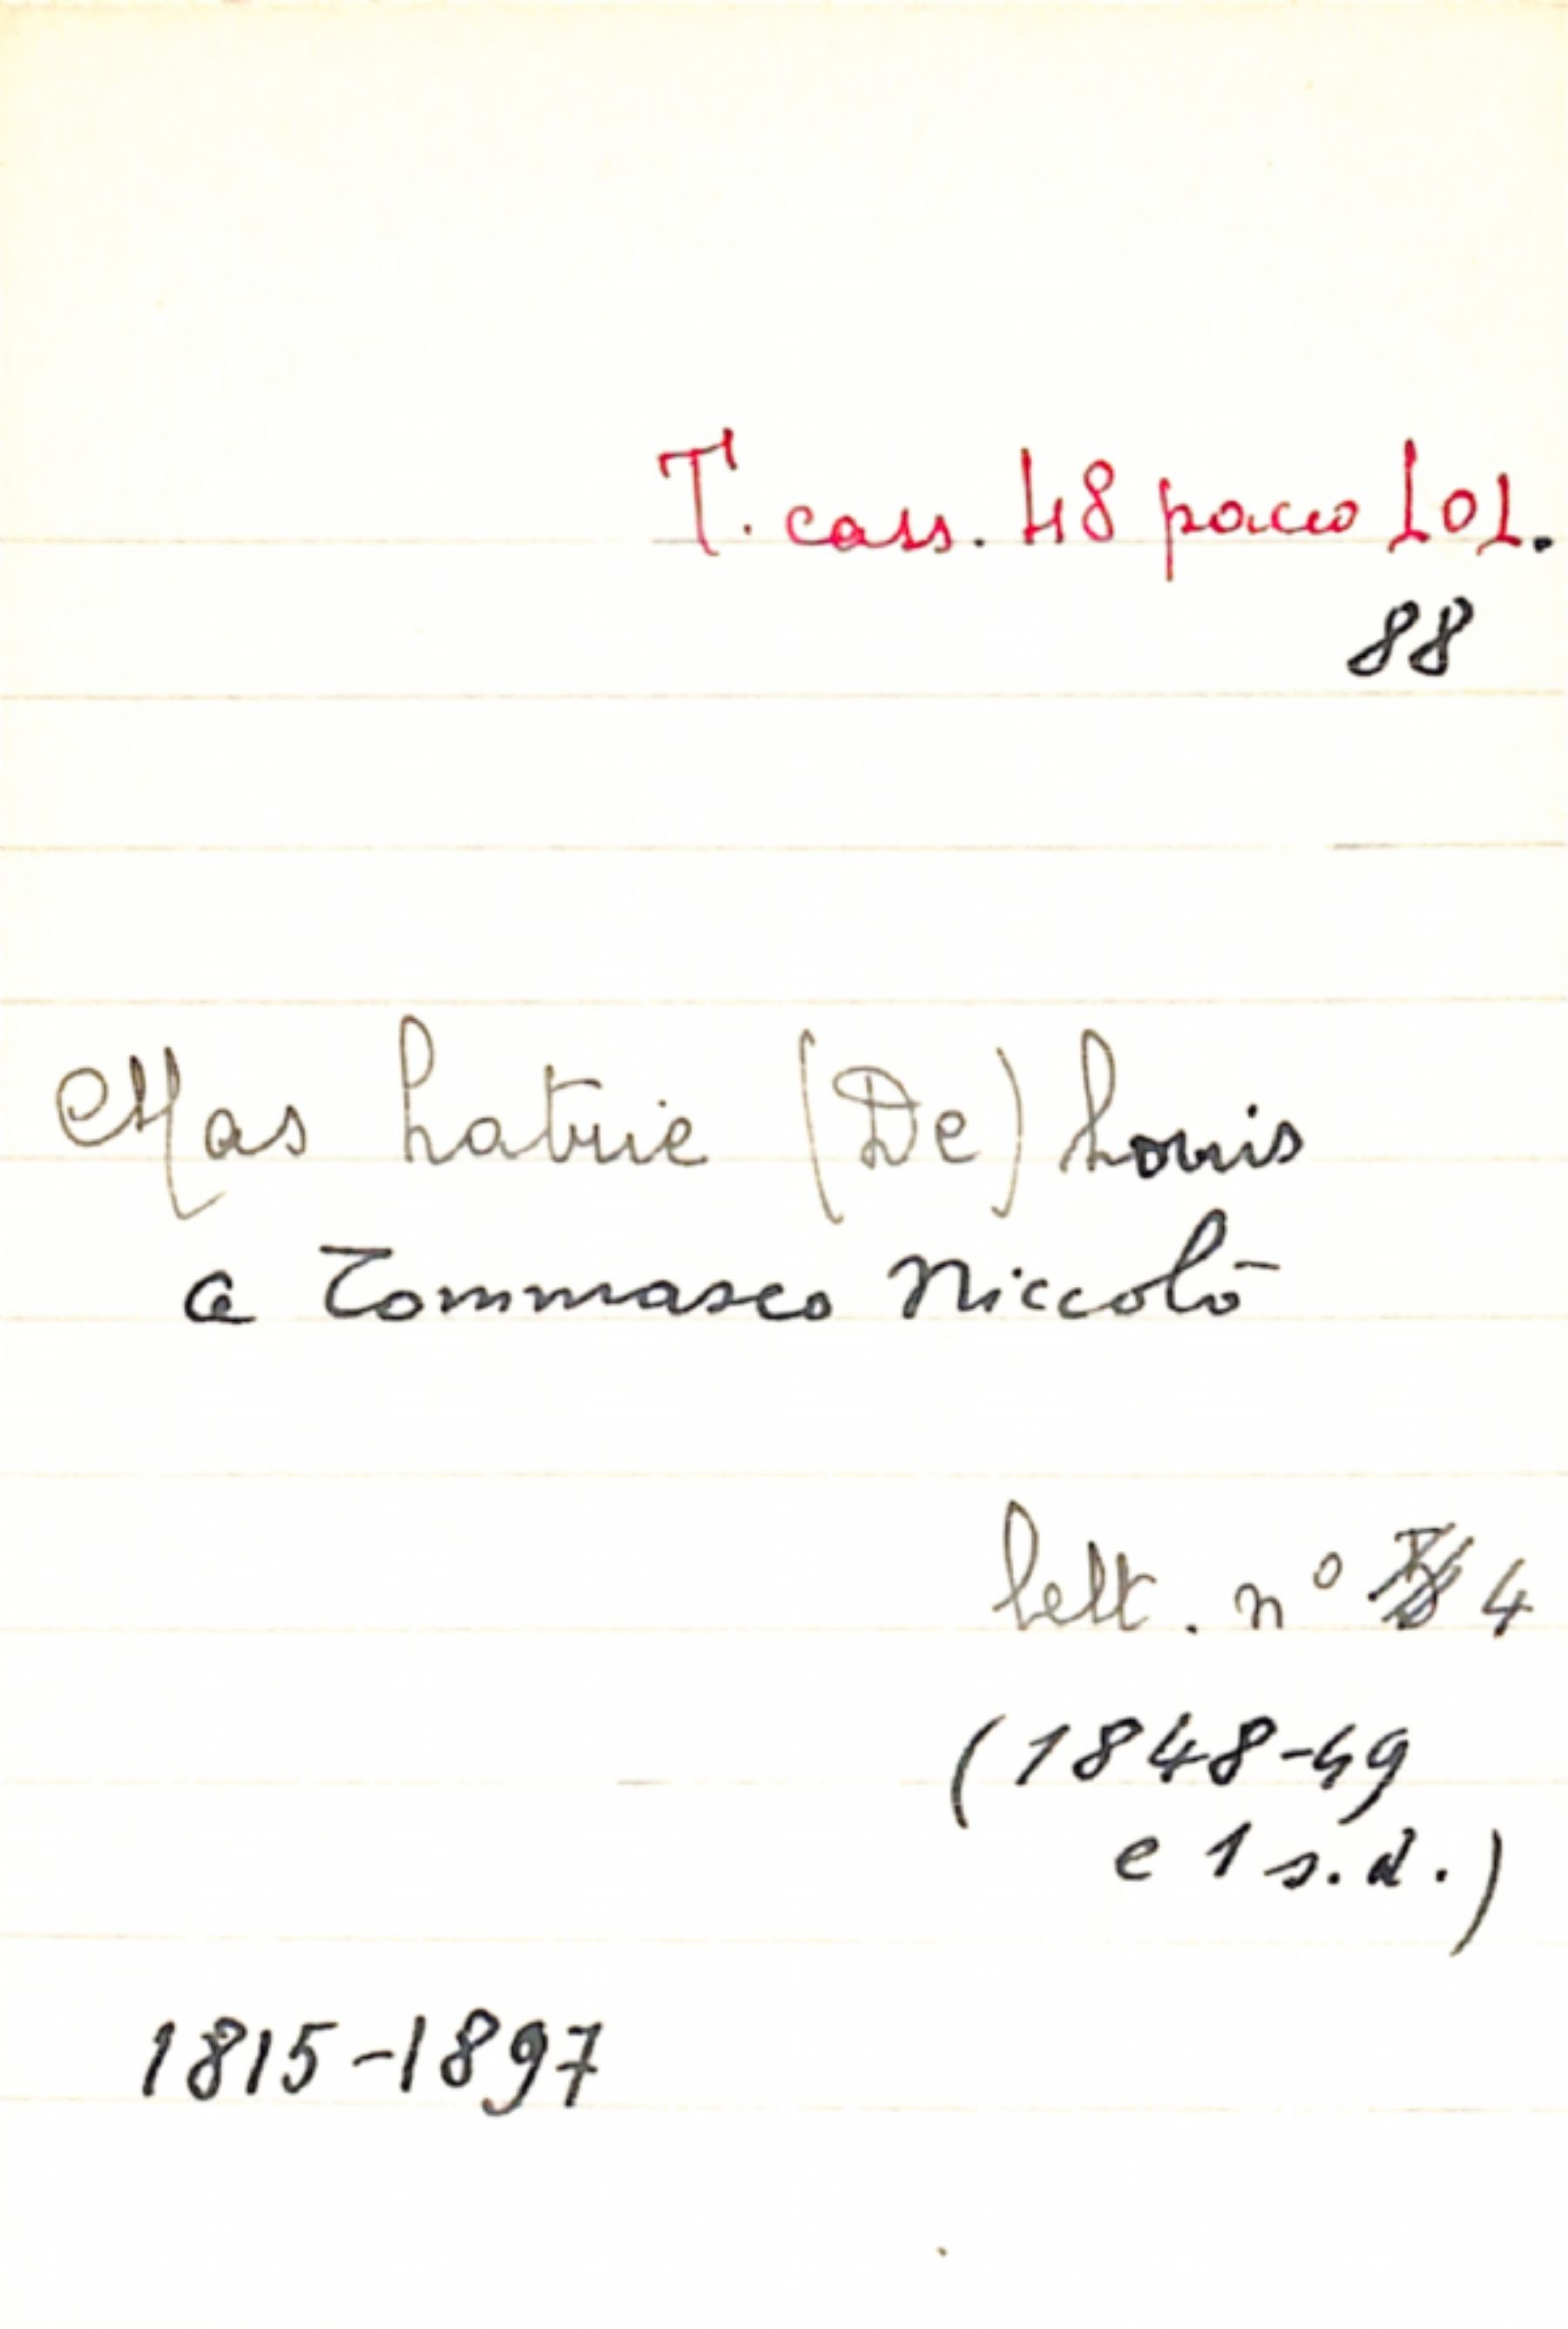 T. cass. 48 pacco 101.
88
Mas Latrie (De) Louis
a Tommaseo Niccolò
lett. n° 4
(1848-49
e 1 s.d.)
1815-1897